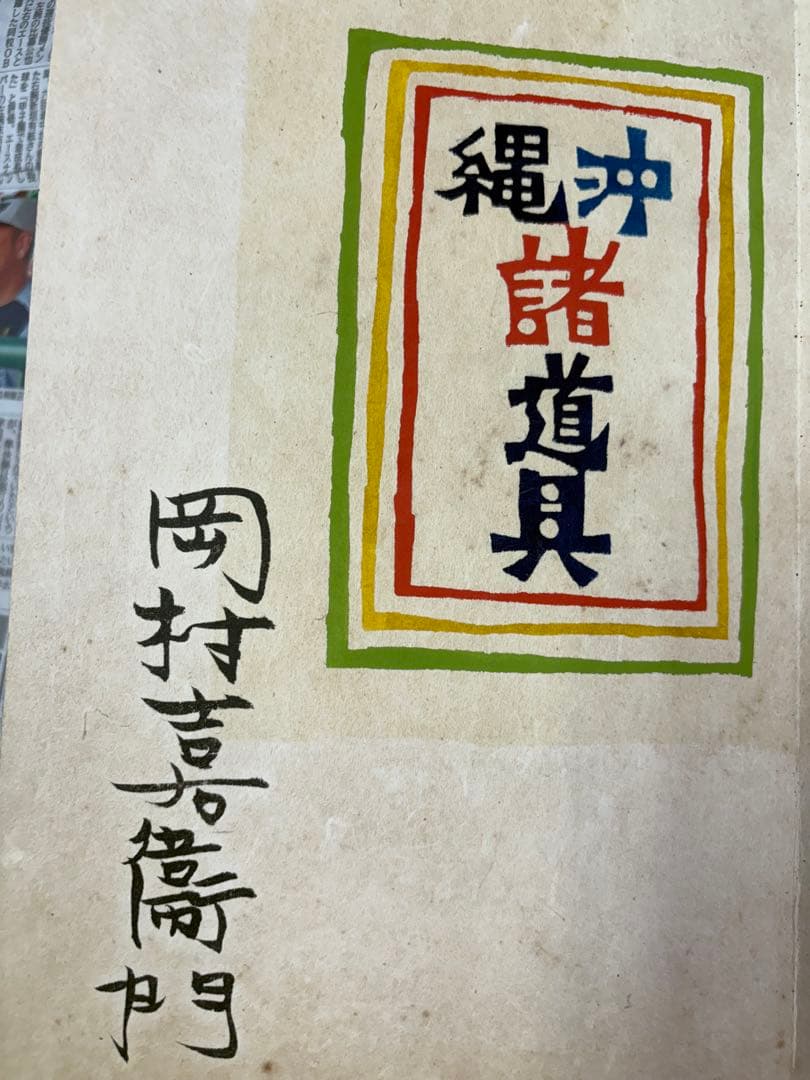 沖縄
諸
道
具
岡村吉右衛門